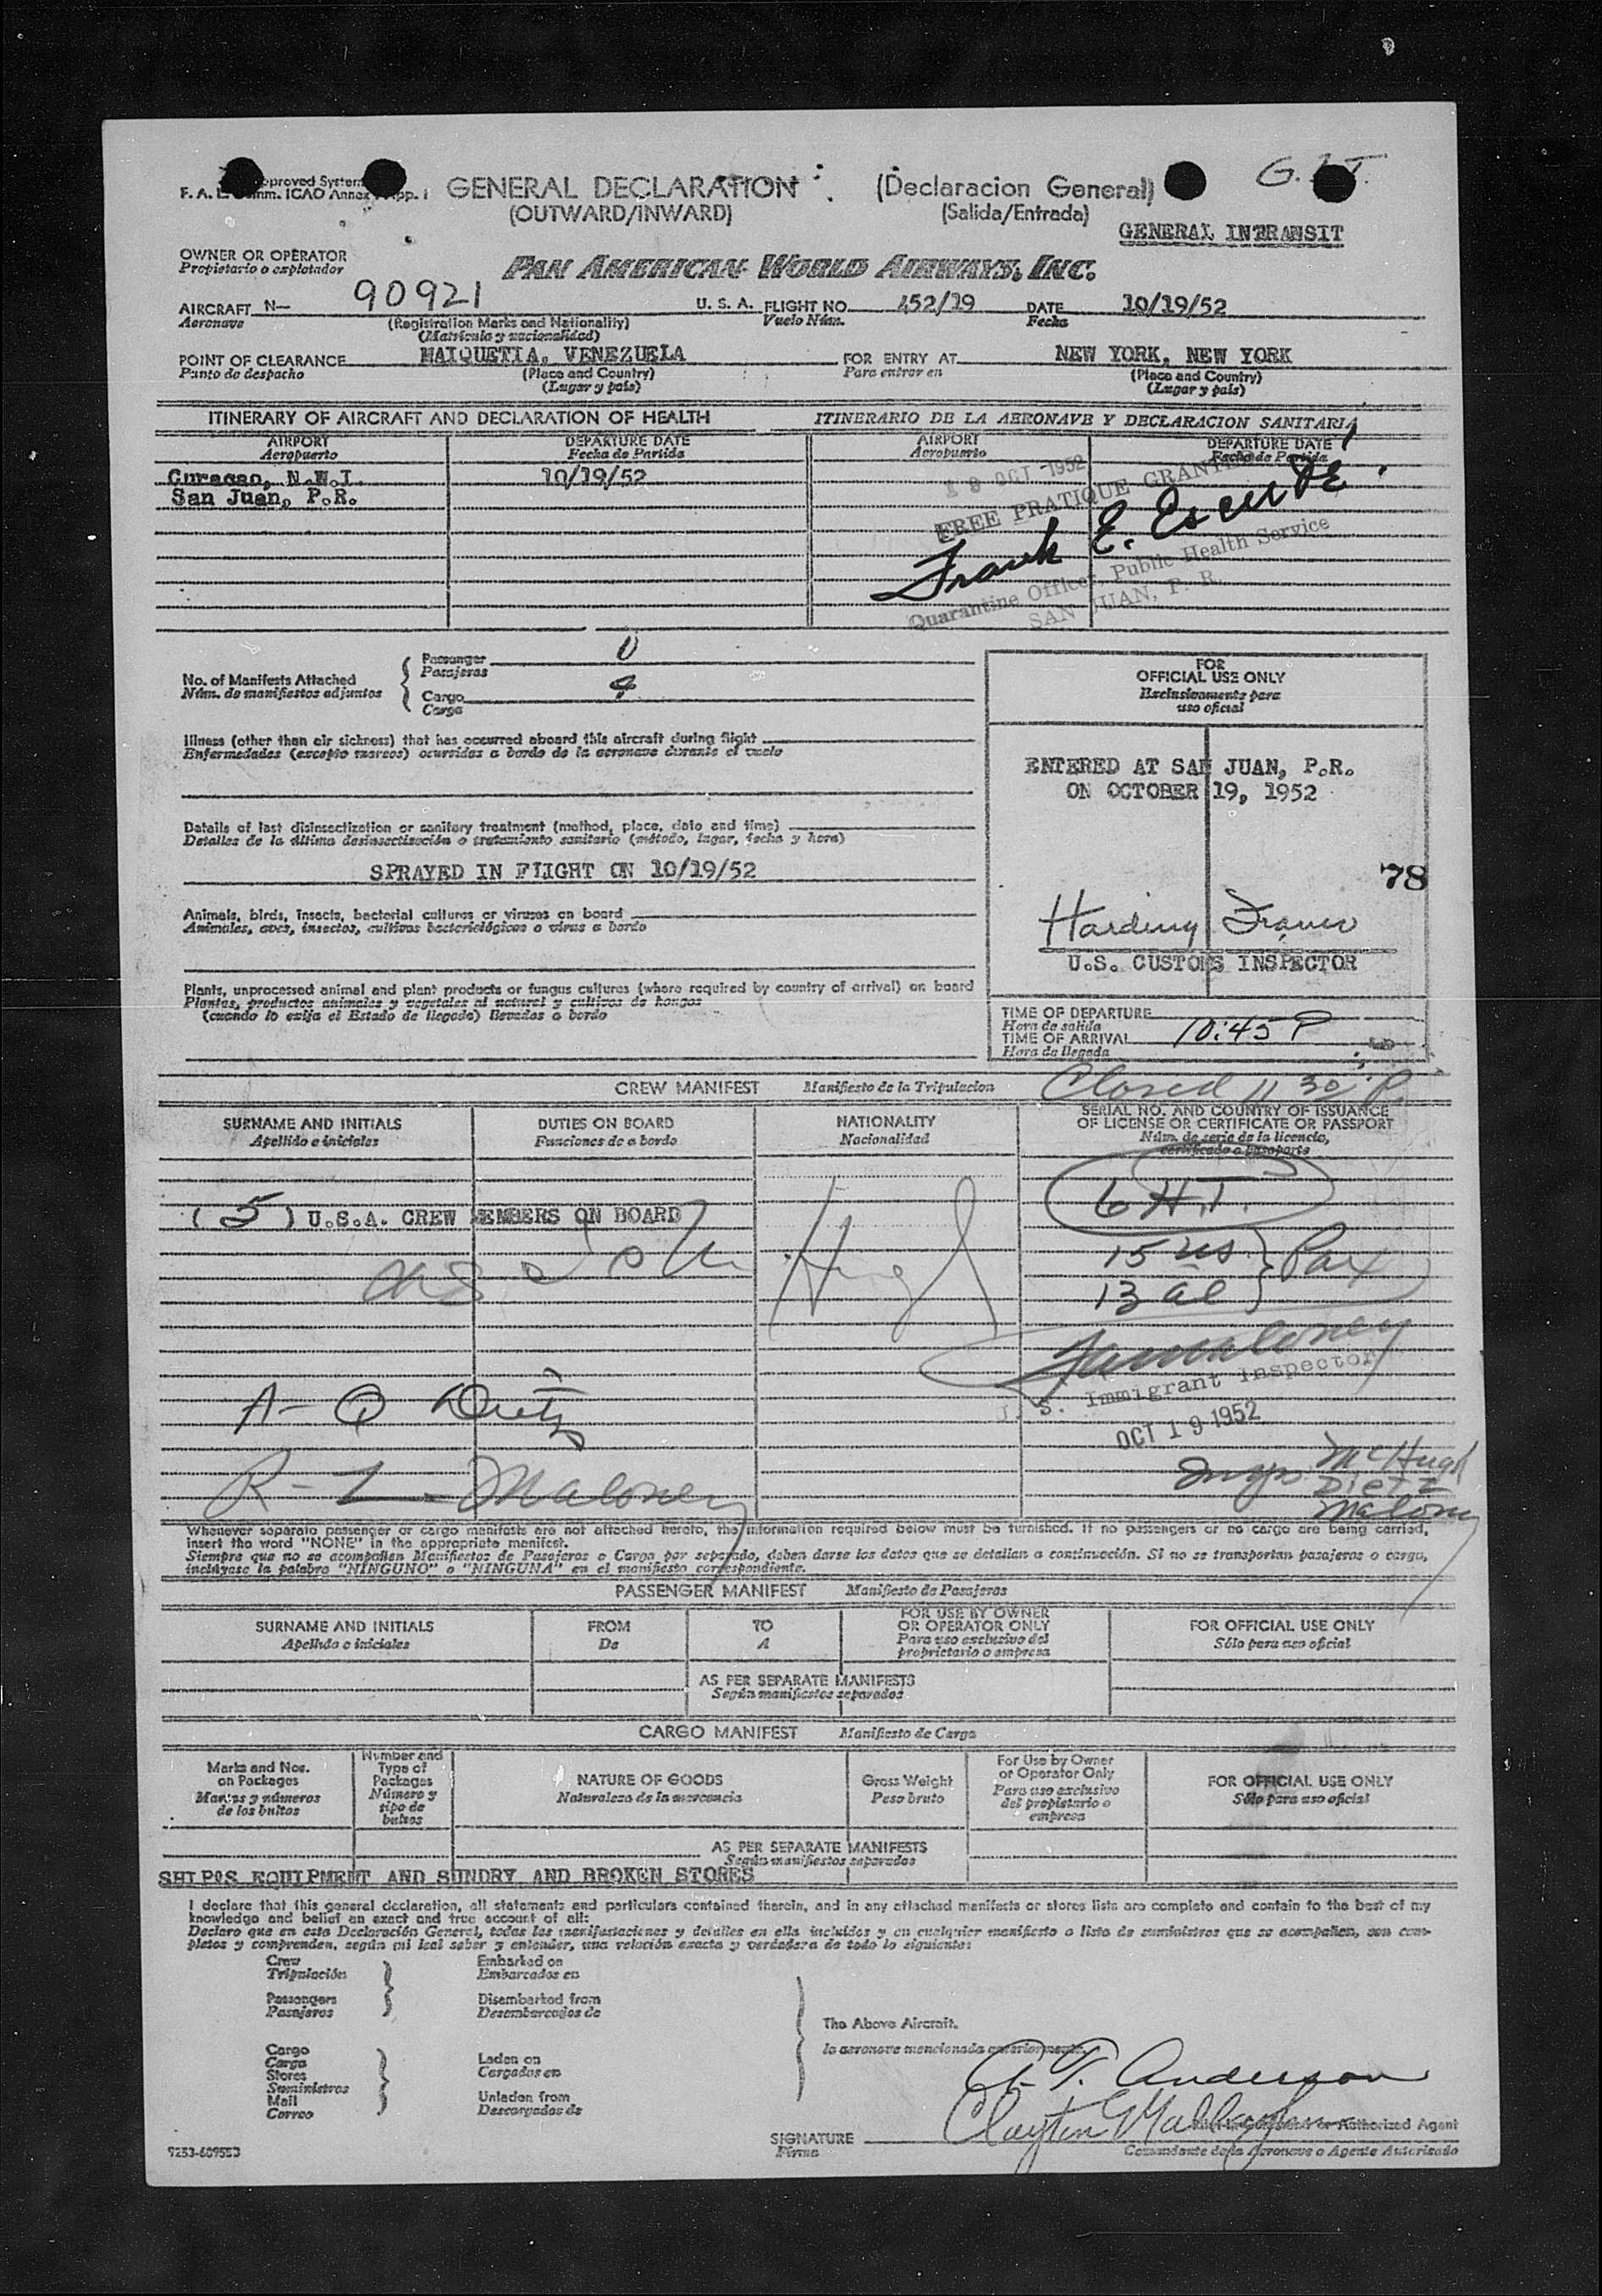 GENERAL DECLARATION (Declaracion General)
(OUTWARD/INWARD) (Salida/Entrada)
GENERAL INTRANSIT
OWNER OR OPERATOR
Propietario o explotador
PAN AMERICAN WORLD AIRWAYS, INC.
AIRCRAFT N— 90921 U. S. A. FLIGHT NO. 452/19 DATE 10/19/52
Aeronave (Registration Marks and Nationality) Vuelo Núm. Fecha
(Matricula y nacionalidad)
POINT OF CLEARANCE MAIQUETIA, VENEZUELA FOR ENTRY AT NEW YORK, NEW YORK
Punto de despacho (Place and Country) Para entrar en (Place and Country)
(Lugar y pais) (Lugar y pais)
ITINERARY OF AIRCRAFT AND DECLARATION OF HEALTH ITINERARIO DE LA AERONAVE Y DECLARACION SANITARIA
AIRPORT DEPARTURE DATE AIRPORT DEPARTURE DATE
Aeropuerto Fecha de Partida Aeropuerto Fecha de Partida
Curacao, N.W.I. 10/19/52
San Juan, P.R.
OCT 1952
FREE PRATIQUE
Frank E.
Quarantine Officer, Public Health Service
SAN JUAN, P. R.
No. of Manifests Attached
Núm. de manifiestos adjuntos
Passenger 0
Pasajeros
Cargo
Carga
FOR
OFFICIAL USE ONLY
Exclusivamente para
uso oficial
Illness (other than air sickness) that has occurred aboard this aircraft during flight
Enfermedades (excepto mareos) ocurridas a bordo de la aeronave durante el vuelo
ENTERED AT SAN JUAN, P.R.
ON OCTOBER 19, 1952
Details of last disinsectization or sanitary treatment (method, place, date and time)
Detalles de la última desinsectisación o tratamiento sanitario (método, lugar, fecha y hora)
SPRAYED IN FLIGHT ON 10/19/52
78
Animals, birds, insects, bacterial cultures or viruses on board
Animales, aves, insectos, cultivos bacteriológicos o virus a bordo
Harding
U.S. CUSTOMS INSPECTOR
Plants, unprocessed animal and plant products or fungus cultures (where required by country of arrival) on board
Plantas, productos animales y vegetales al natural y cultivos de hongos
(cuando lo exija el Estado de llegada) llevados a bordo
TIME OF DEPARTURE
Hora de salida
TIME OF ARRIVAL 10:45 P
Hora de llegada
CREW MANIFEST Manifiesto de la Tripulacion Closed 11 30 P.
SURNAME AND INITIALS DUTIES ON BOARD NATIONALITY SERIAL NO. AND COUNTRY OF ISSUANCE
OF LICENSE OR CERTIFICATE OR PASSPORT
Apellido e iniciales Funciones de a bordo Nacionalidad Núm. de serie de la licencia,
certificado o pasaporte
( 5 ) U.S.A. CREW MEMBERS ON BOARD
15 us
13 al
Pax
U. S. Immigrant Inspector
OCT 19 1952
R - L - Maloney
McHugh
Dietz
Maloney
Whenever separate passenger or cargo manifests are not attached hereto, the information required below must be furnished. If no passengers or no cargo are being carried,
insert the word "NONE" in the appropriate manifest.
Siempre que no se acompañen Manifiestos de Pasajeros o Carga por separado, deben darse los datos que se detallan a continuación. Si no se transportan pasajeros o carga,
inclúyase la palabra "NINGUNO" o "NINGUNA" en el manifiesto correspondiente.
PASSENGER MANIFEST Manifiesto de Pasajeros
SURNAME AND INITIALS FROM TO FOR USE BY OWNER
OR OPERATOR ONLY FOR OFFICIAL USE ONLY
Apellido e iniciales De A Para uso exclusivo del
proprietario o empresa Sólo para uso oficial
AS PER SEPARATE MANIFESTS
Según manifiestos separados
CARGO MANIFEST Manifiesto de Carga
Marks and Nos.
on Packages
Marcas y números
de los bultos
Number and
Type of
Packages
Número y
tipo de
bultos
NATURE OF GOODS
Naturaleza de la mercancia
Gross Weight
Peso bruto
For Use by Owner
or Operator Only
Para uso exclusivo
del propietario o
empresa
FOR OFFICIAL USE ONLY
Sólo para uso oficial
AS PER SEPARATE MANIFESTS
Según manifiestos separados
SHIP'S EQUIPMENT AND SUNDRY AND BROKEN STORES
I declare that this general declaration, all statements and particulars contained therein, and in any attached manifests or stores lists are complete and contain to the best of my
knowledge and belief an exact and true account of all:
Declaro que en esta Declaración General, todas las manifestaciones y detalles en ella incluidos y en cualquier manifiesto o lista de suministros que se acompañen, son com-
pletos y comprenden, según mi leal saber y entender, una relación exacta y verdadera de todo lo siguiente:
Crew
Tripulación
Passengers
Pasajeros
Embarked on
Embarcados en
Disembarked from
Desembarcados de
Cargo
Carga
Stores
Suministros
Mail
Correo
Laden on
Cargados en
Unladen from
Descargados de
The Above Aircraft.
la aeronave mencionada anteriormente
Anderson
Clayton
Authorized Agent
SIGNATURE
Firma
Comandante de la Aeronave o Agente Autorizado